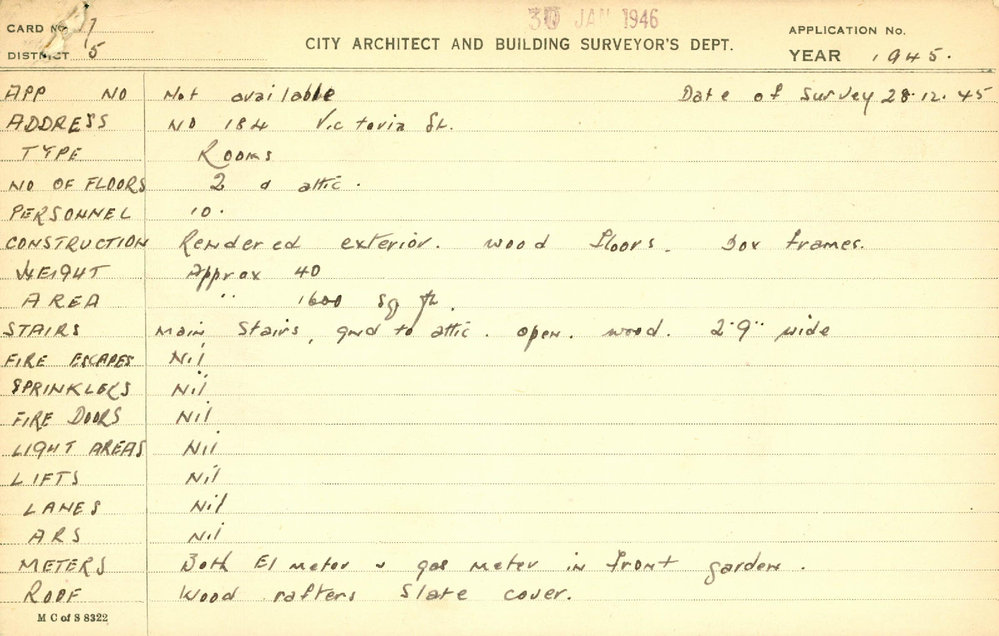 30 JAN 1946
CARD No. 1
APPLICATION No.
CITY ARCHITECT AND BUILDING SURVEYOR'S DEPT.
DISTRICT 5
YEAR 1945.
APP NO Not available Date of Survey 28.12.45
ADDRESS NO 184 Victoria St.
TYPE Rooms
NO OF FLOORS 2 & attic.
PERSONNEL 10.
CONSTRUCTION Rendered exterior. wood floors. Box frames.
HEIGHT Approx 40
AREA " 1600 sq ft.
STAIRS Main Stairs, gnd to attic. open. wood. 2'9" wide
FIRE ESCAPES Nil
SPRINKLERS Nil
FIRE DOORS Nil
LIGHT AREAS Nil
LIFTS Nil
LANES Nil
ARS Nil
METERS Both El meter & gas meter in front garden.
ROOF Wood rafters Slate cover.
M C of S 8322